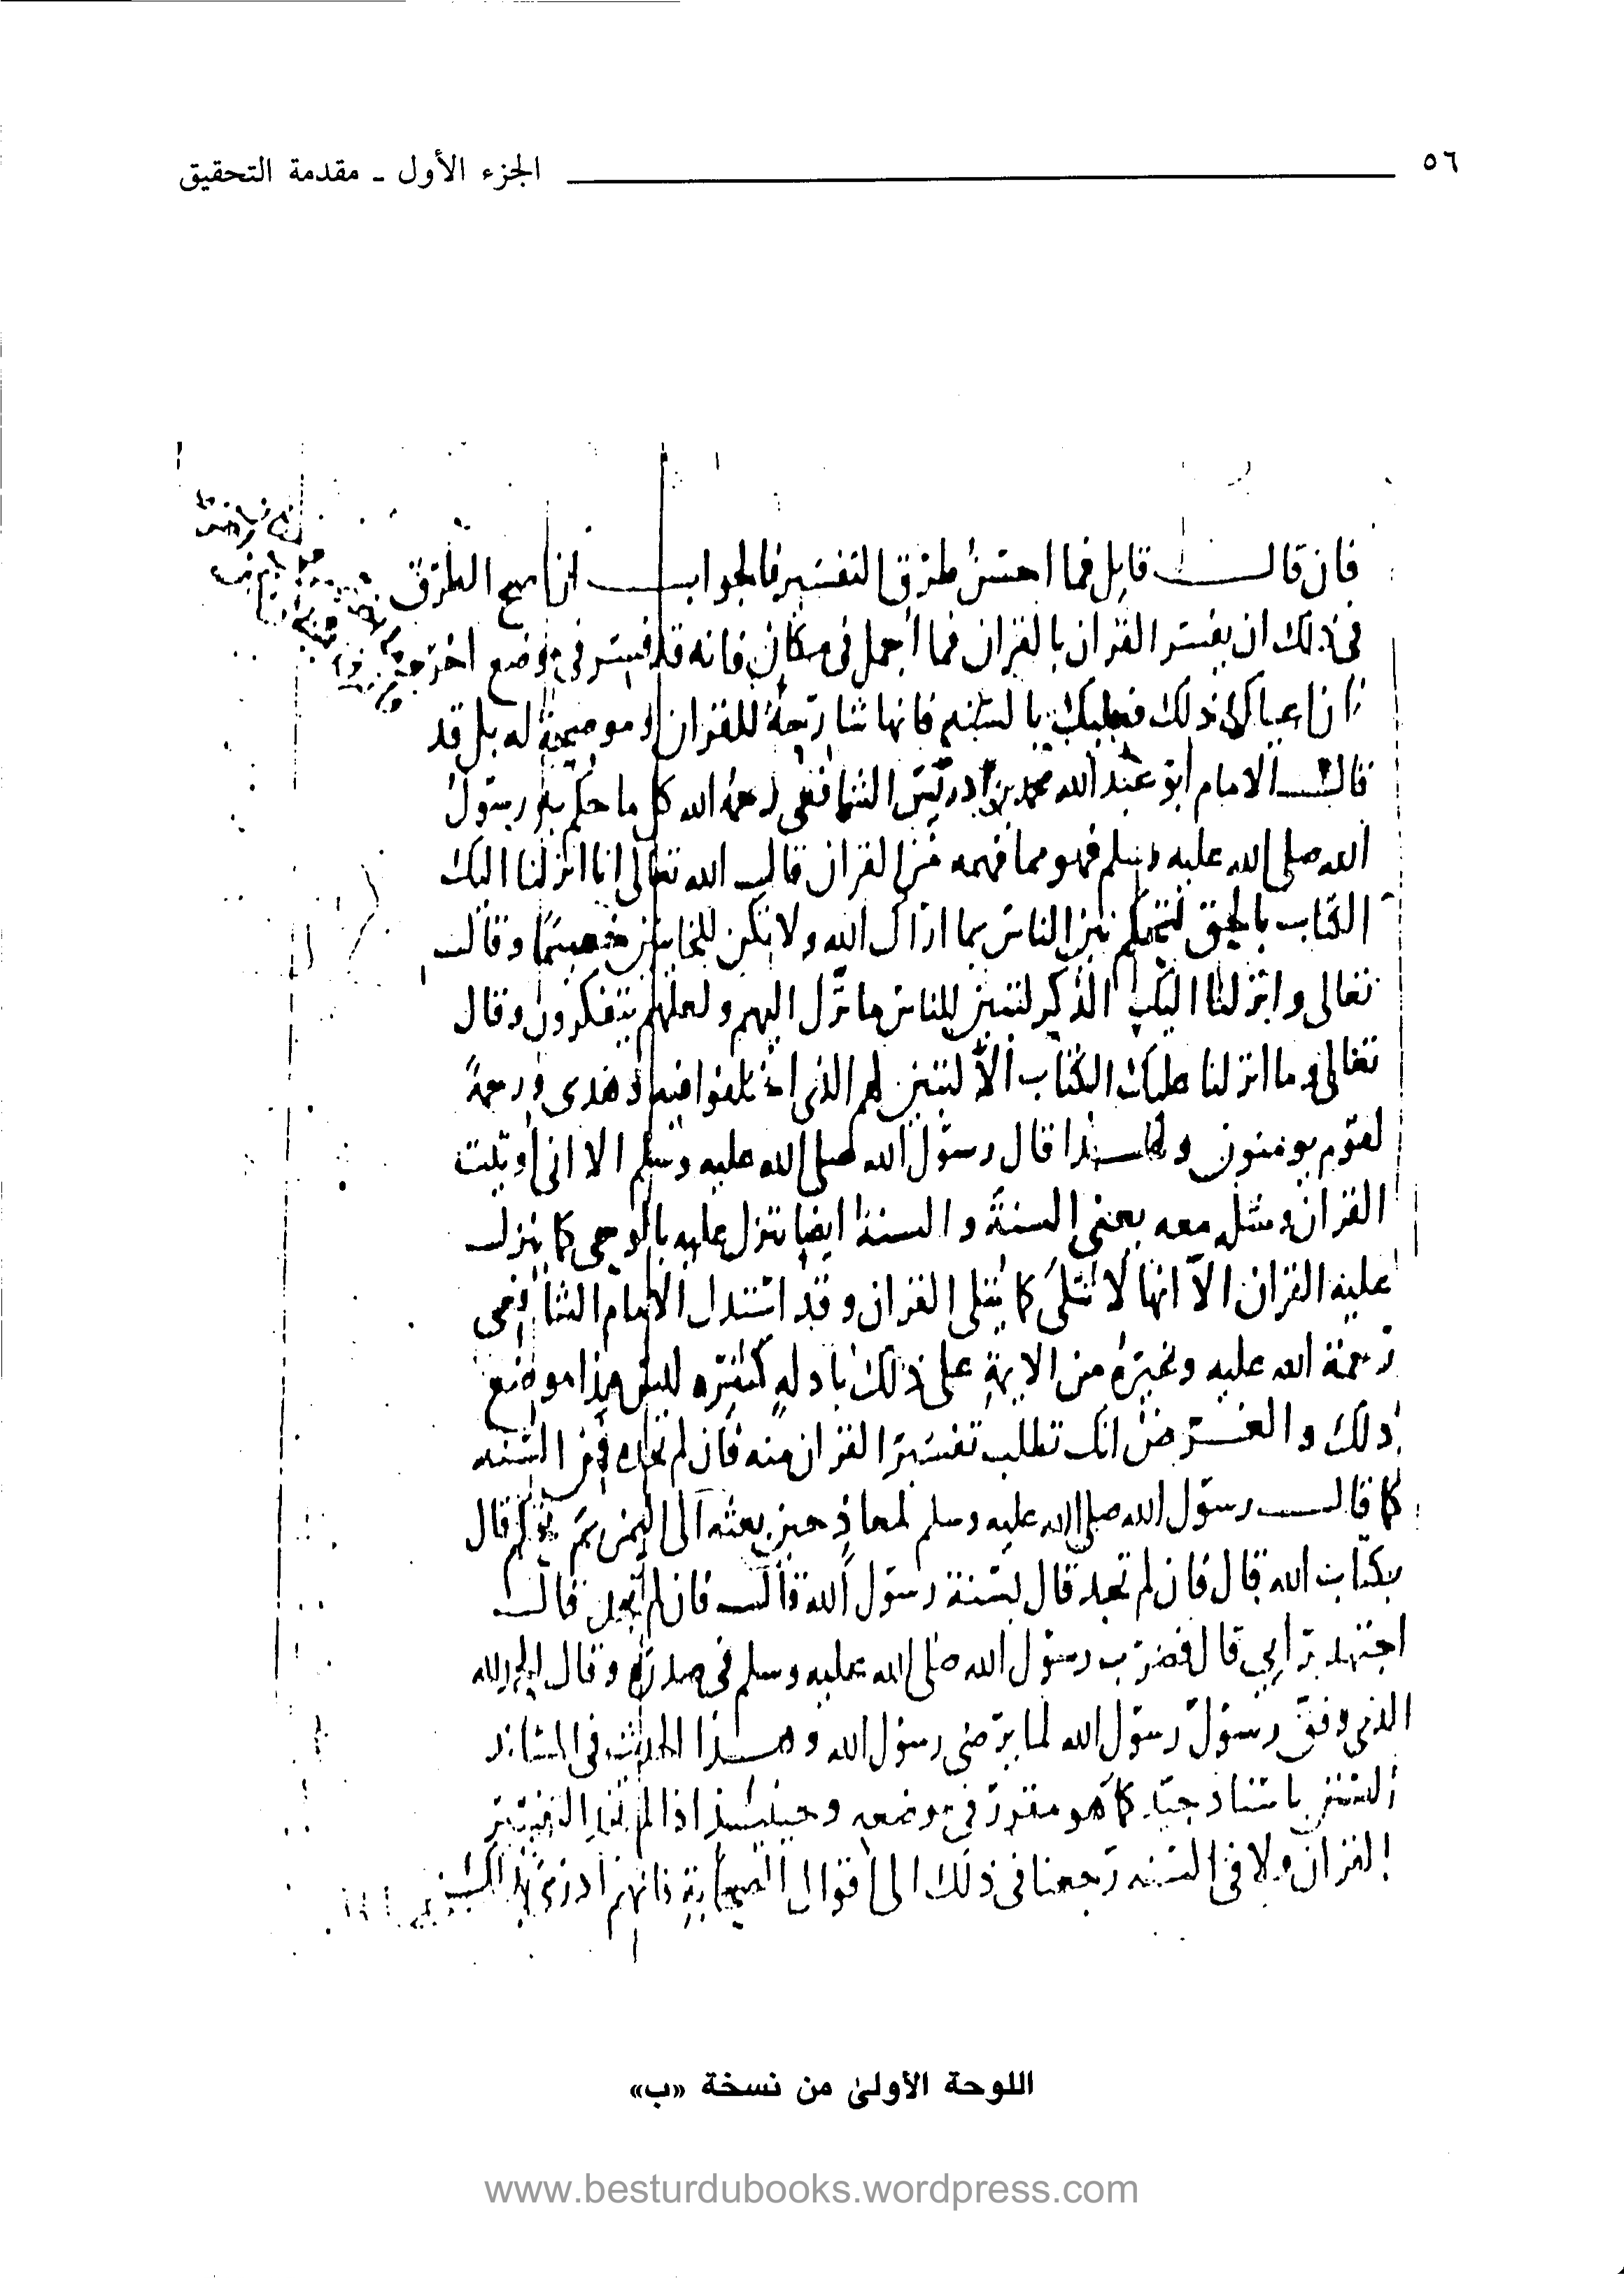 ٥٦ الجزء الأول ـ مقدمة التحقيق
فان قال قايل فما احسن طرق التفسير فالجواب ان اصح الطرق
فى ذلك ان يفسر القران بالقران فما اجمل فى مكان فانه قد فسر فى موضع اخر
فان اعياك ذلك فعليك بالسنه فانها شارحة للقران وموضحة له بل قد
قال الامام ابو عبد الله محمد بن ادريس الشافعى رحمه الله كل ما حكم به رسول
الله صلى الله عليه وسلم فهو مما فهمه من القران قال الله تعالى انا انزلنا اليك
الكتاب بالحق لتحكم بين الناس بما اراك الله ولا تكن للخاينين خصيما وقال
تعالى وانزلنا اليك الذكر لتبين للناس ما نزل اليهم ولعلهم يتفكرون وقال
تعالى وما انزلنا عليك الكتاب الّا لتبين لهم الذى اختلفوا فيه وهدى ورحمة
لقوم يومنون ولهذا قال رسول الله صلى الله عليه وسلم الا انى اوتيت
القران ومثله معه يعنى السنة والسنة ايضا تنزل عليه بالوحى كما ينزل
عليه القران الّا انها لا تتلى كما يتلى القران وقد استدل الامام الشافعى
رحمة الله عليه وغيره من الايمة على ذلك بادلة كثيره ليس هذا موضع
ذلك والغرض انك تطلب تفسير القران منه فان لم تجده فمن السنه
كما قال رسول الله صلى الله عليه وسلم لمعاذ حين بعثه الى اليمن بم تحكم قال
بكتاب الله قال فان لم تجد قال بسنة رسول الله قال فان لم تجد قال
اجتهد برايى قال فضرب رسول الله صلى الله عليه وسلم فى صدره وقال الحمد لله
الذى وفق رسول رسول الله لما يرضى رسول الله وهذا الحديث فى المساند
والسنن باسناد جيد كما هو مقرر فى موضعه وحينئذ اذا لم نجد التفسير
القران ولا فى السنه رجعنا فى ذلك الى اقوال الصحابة فانهم ادرى بذلك
اللوحة الأولىٰ من نسخة «ب»
www.besturdubooks.wordpress.com